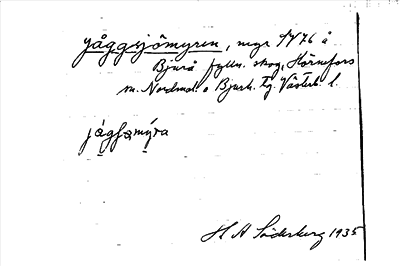 Jåggsjömyren, myr 1476 å
Bjurå fylln. skog, Hörnefors
m. Nordmal. o Bjurh. tg. Västerb. l.
jågʃəmýra
H A Söderberg 1935